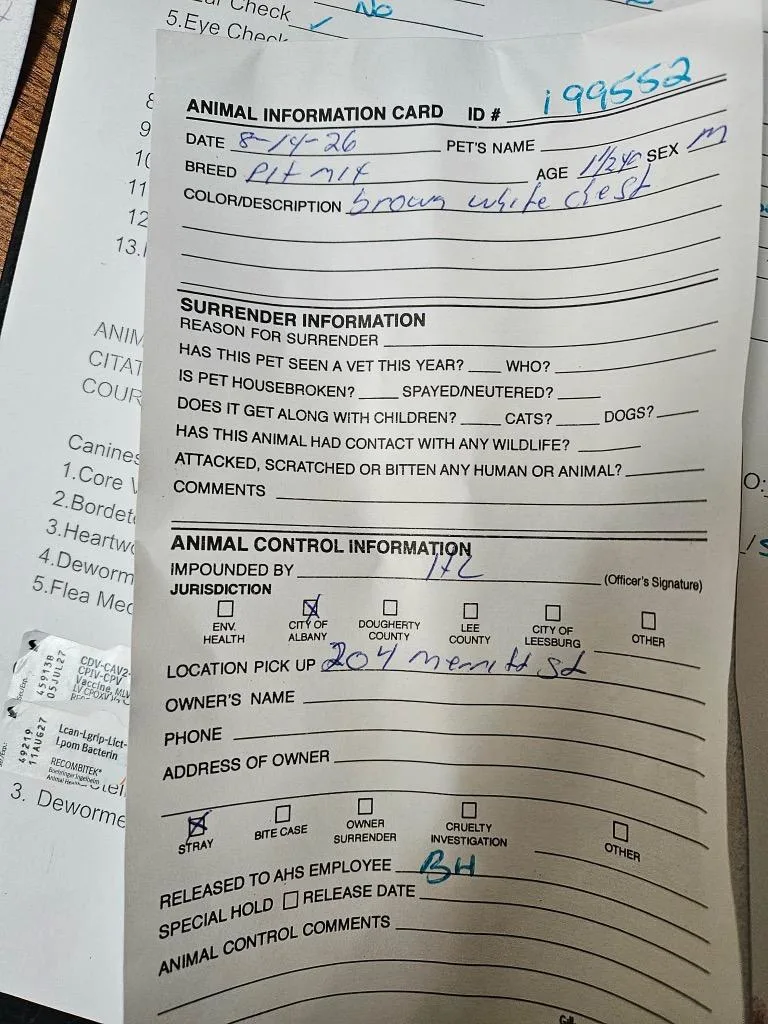 Ear Check No
5.Eye Check ✓
8
9
10
11
12
13.
ANIM
CITAT
COUR
Canines
1.Core V
2.Bordet
3.Heartwo
4.Deworm
5.Flea Med
45913B
05JUL27
CDV-CAV2-
CPIV-CPV
Vaccine, MLV
49219
11AUG27
Lcan-Lgrip-Lict-
Lpom Bacterin
RECOMBITEK®
Boehringer Ingelheim
Animal Health
3. Deworme
ANIMAL INFORMATION CARD ID # 199552
DATE 8-14-26 PET'S NAME
BREED Pit mix AGE 1 1/2 yo SEX M
COLOR/DESCRIPTION brown white chest
SURRENDER INFORMATION
REASON FOR SURRENDER
HAS THIS PET SEEN A VET THIS YEAR? WHO?
IS PET HOUSEBROKEN? SPAYED/NEUTERED?
DOES IT GET ALONG WITH CHILDREN? CATS? DOGS?
HAS THIS ANIMAL HAD CONTACT WITH ANY WILDLIFE?
ATTACKED, SCRATCHED OR BITTEN ANY HUMAN OR ANIMAL?
COMMENTS
ANIMAL CONTROL INFORMATION
IMPOUNDED BY (Officer's Signature)
JURISDICTION
ENV. HEALTH
CITY OF ALBANY
DOUGHERTY COUNTY
LEE COUNTY
CITY OF LEESBURG
OTHER
LOCATION PICK UP 204 merritt st
OWNER'S NAME
PHONE
ADDRESS OF OWNER
STRAY
BITE CASE
OWNER SURRENDER
CRUELTY INVESTIGATION
OTHER
RELEASED TO AHS EMPLOYEE BH
SPECIAL HOLD RELEASE DATE
ANIMAL CONTROL COMMENTS